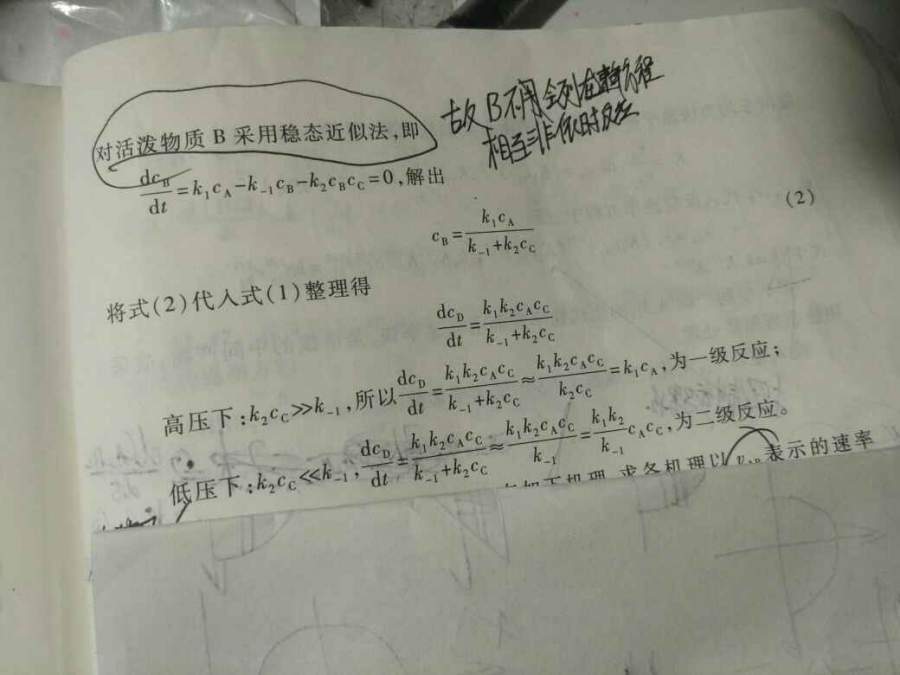 对活泼物质 B 采用稳态近似法,即
故 B 不用
相互
dc_B/dt = k₁c_A − k₋₁c_B − k₂c_Bc_C = 0,解出
c_B = k₁c_A/(k₋₁ + k₂c_C) (2)
将式(2)代入式(1)整理得
dc_D/dt = k₁k₂c_Ac_C/(k₋₁ + k₂c_C)
高压下:k₂c_C≫k₋₁,所以 dc_D/dt = k₁k₂c_Ac_C/(k₋₁ + k₂c_C) ≈ k₁k₂c_Ac_C/(k₂c_C) = k₁c_A,为一级反应;
低压下:k₂c_C≪k₋₁,dc_D/dt = k₁k₂c_Ac_C/(k₋₁ + k₂c_C) ≈ k₁k₂c_Ac_C/k₋₁ = (k₁k₂/k₋₁)c_Ac_C,为二级反应。
如下机理,求各机理以 表示的速率